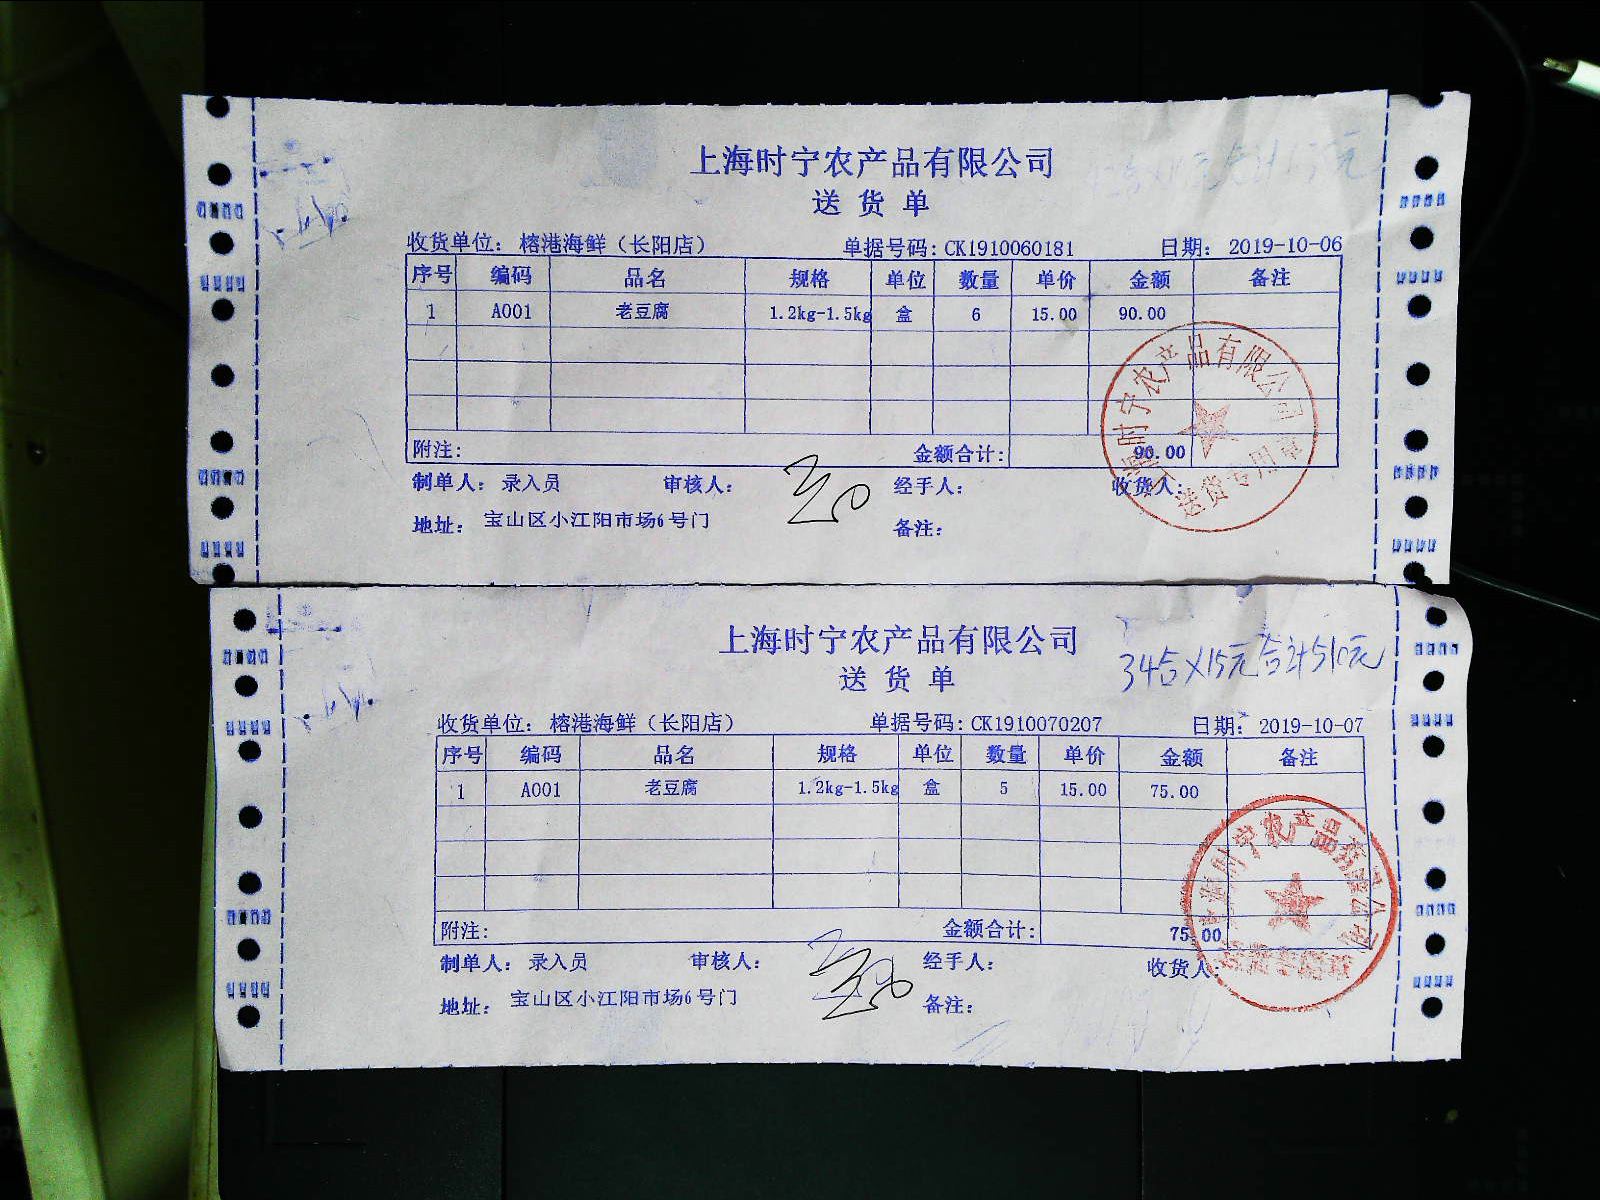 上海时宁农产品有限公司
送货单
收货单位: 榕港海鲜（长阳店） 单据号码:CK1910060181 日期: 2019-10-06
序号 编码 品名 规格 单位 数量 单价 金额 备注
1 A001 老豆腐 1.2kg-1.5kg 盒 6 15.00 90.00
附注: 金额合计: 90.00
制单人: 录入员 审核人: 经手人: 收货人:
地址: 宝山区小江阳市场6号门 备注:
上海时宁农产品有限公司
送货专用章
上海时宁农产品有限公司
34合X15元合计510元
送货单
收货单位: 榕港海鲜（长阳店） 单据号码:CK1910070207 日期: 2019-10-07
序号 编码 品名 规格 单位 数量 单价 金额 备注
1 A001 老豆腐 1.2kg-1.5kg 盒 5 15.00 75.00
附注: 金额合计: 75.00
制单人: 录入员 审核人: 经手人: 收货人:
地址: 宝山区小江阳市场6号门 备注:
上海时宁农产品有限公司